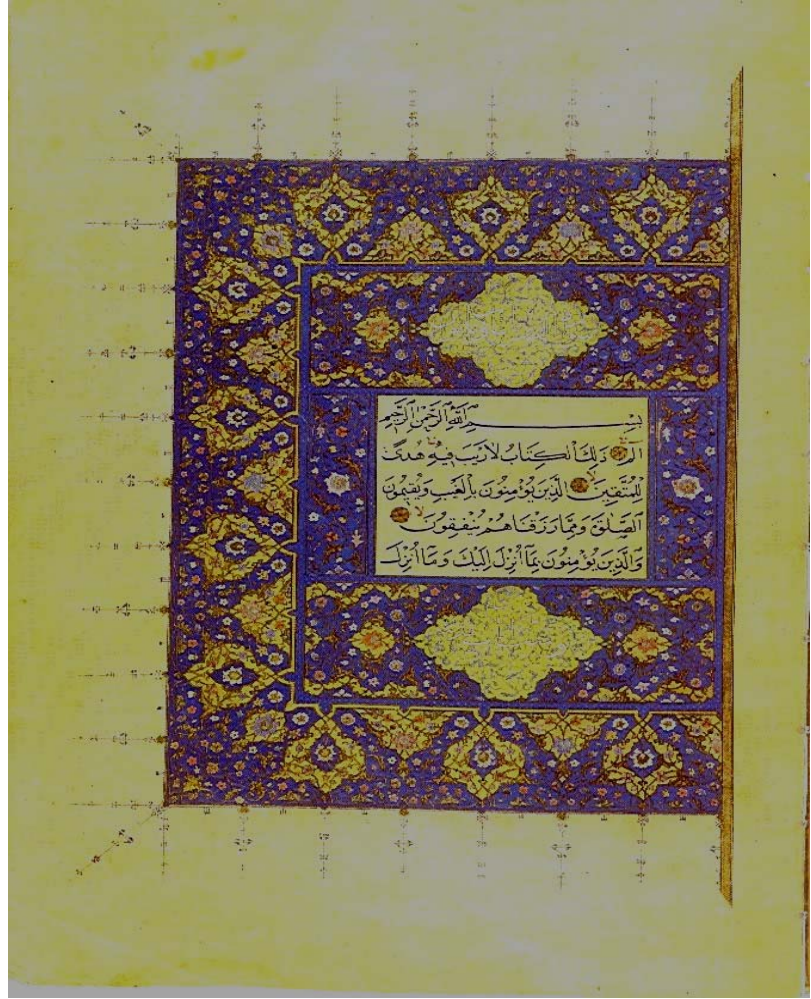 بِسْمِ اللَّهِ الرَّحْمَٰنِ الرَّحِيمِ
الٓمٓ ذَلِكَ الْكِتَابُ لَارَيْبَ فِيهِ هُدًى
لِلْمُتَّقِينَ الَّذِينَ يُؤْمِنُونَ بِالْغَيْبِ وَيُقِيمُونَ
الصَّلٰوةَ وَمِمَّا رَزَقْنَاهُمْ يُنْفِقُونَ
وَالَّذِينَ يُؤْمِنُونَ بِمَا أُنْزِلَ إِلَيْكَ وَمَا أُنْزِلَ